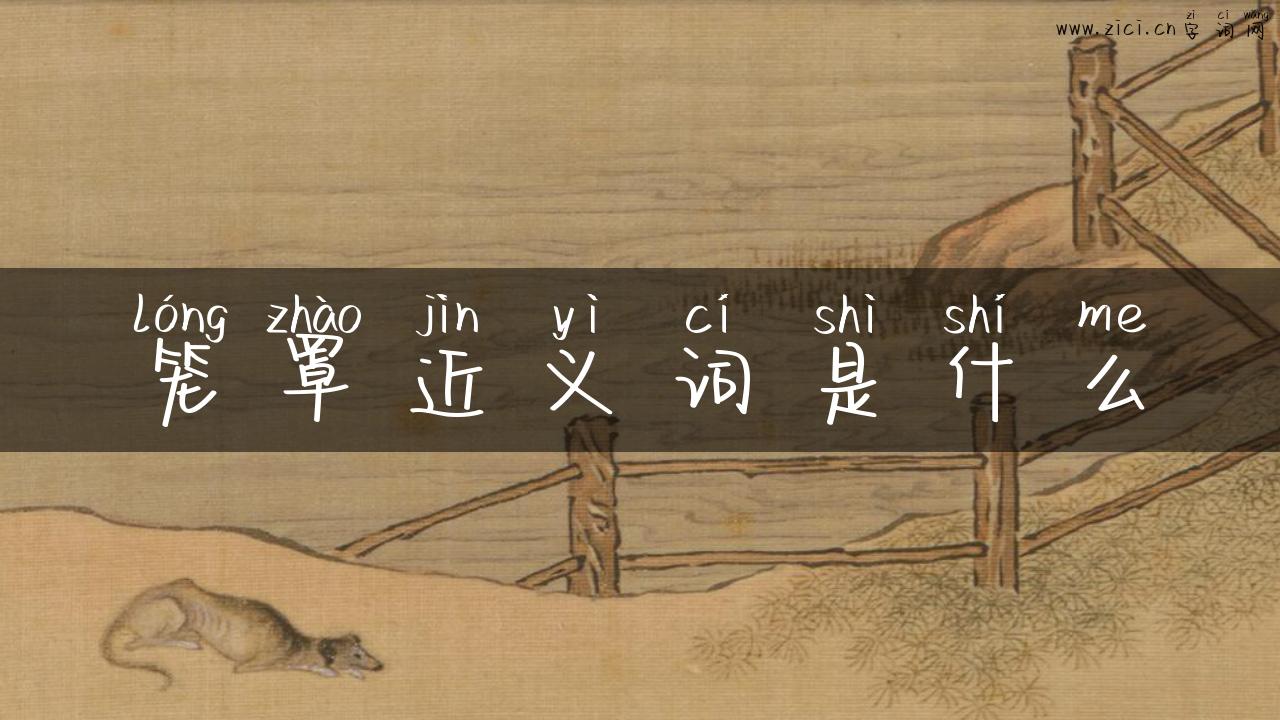 zi ci wang
www.zici.cn字词网
lóng zhào jìn yì cí shì shí me
笼罩近义词是什么